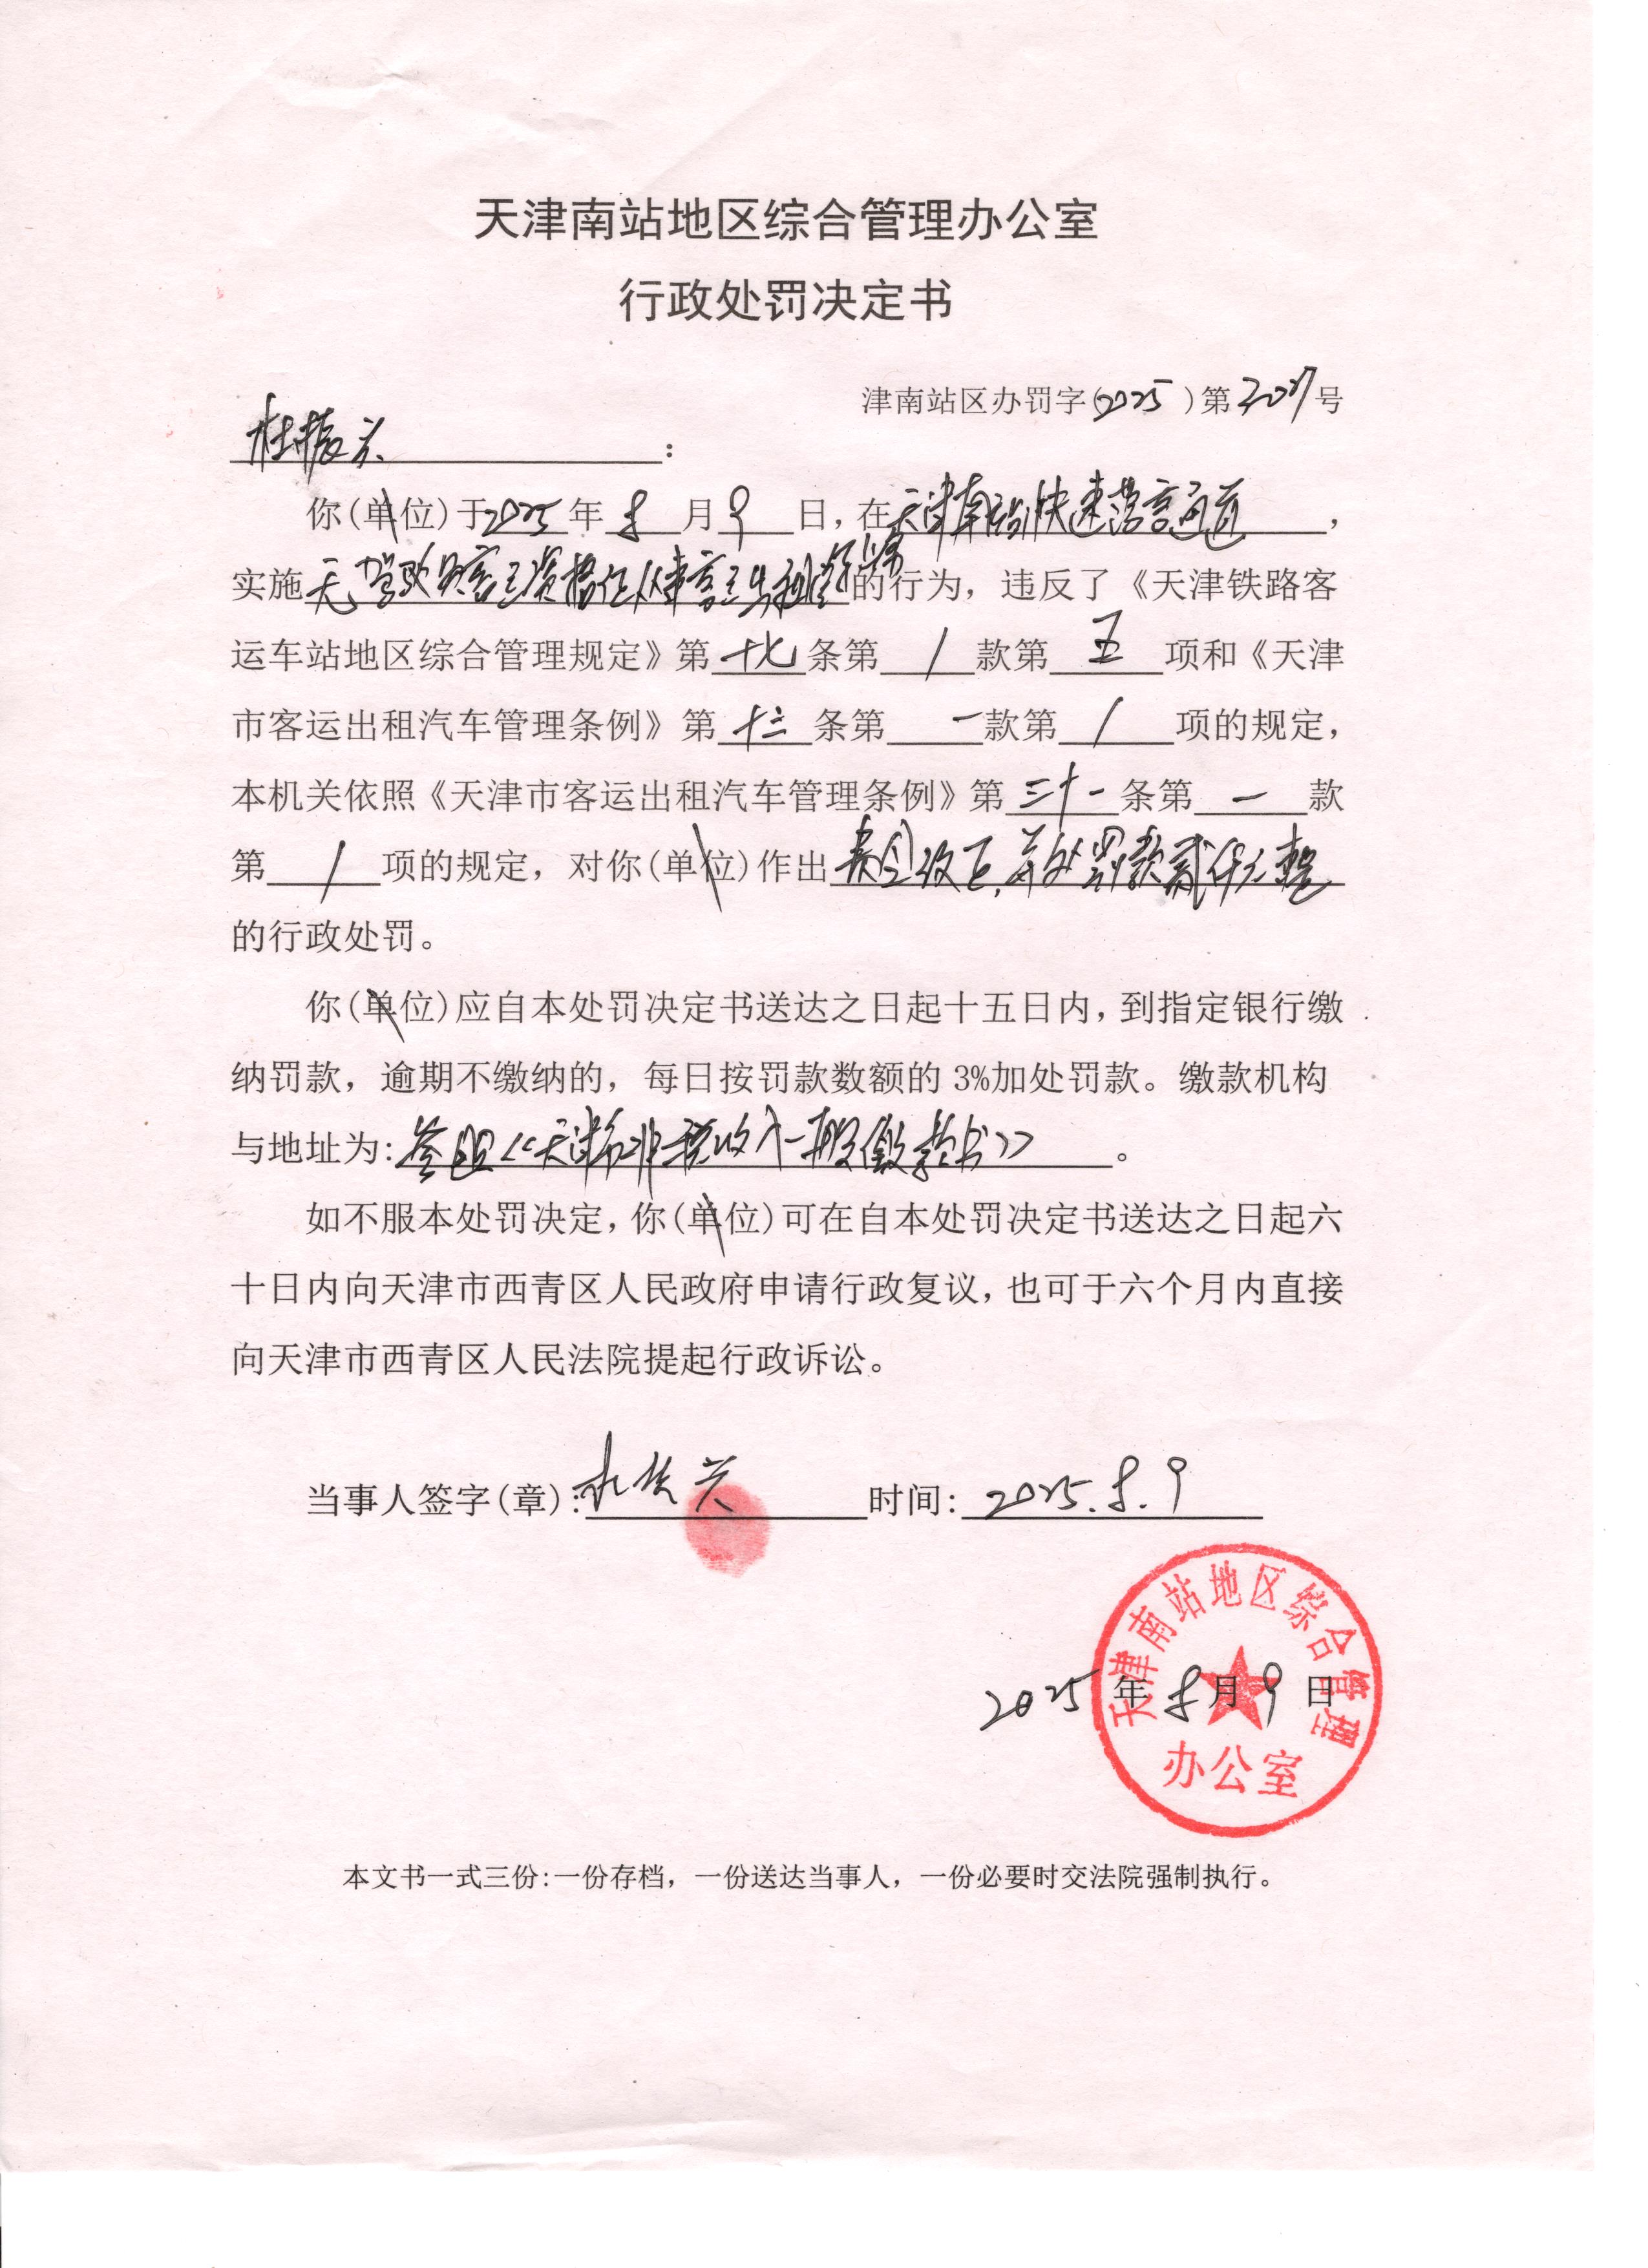 天津南站地区综合管理办公室
行政处罚决定书
津南站区办罚字(2025)第2017号
杜振兴:
你(单位)于2025年8月9日,在天津南站快速落客通道,
实施无驾驶员客运资格证从事客运出租 的行为,违反了《天津铁路客
运车站地区综合管理规定》第十七条第/款第五项和《天津
市客运出租汽车管理条例》第十三条第一款第/项的规定,
本机关依照《天津市客运出租汽车管理条例》第三十一条第一款
第/项的规定,对你(单位)作出责令改正,并处罚款贰仟元整
的行政处罚。
你(单位)应自本处罚决定书送达之日起十五日内,到指定银行缴
纳罚款,逾期不缴纳的,每日按罚款数额的3%加处罚款。缴款机构
与地址为:参照《天津市非税收入一般缴款书》。
如不服本处罚决定,你(单位)可在自本处罚决定书送达之日起六
十日内向天津市西青区人民政府申请行政复议,也可于六个月内直接
向天津市西青区人民法院提起行政诉讼。
当事人签字(章):杜振兴 时间:2025.8.9
天津南站地区综合管理
2025年8月9日
办公室
本文书一式三份:一份存档,一份送达当事人,一份必要时交法院强制执行。